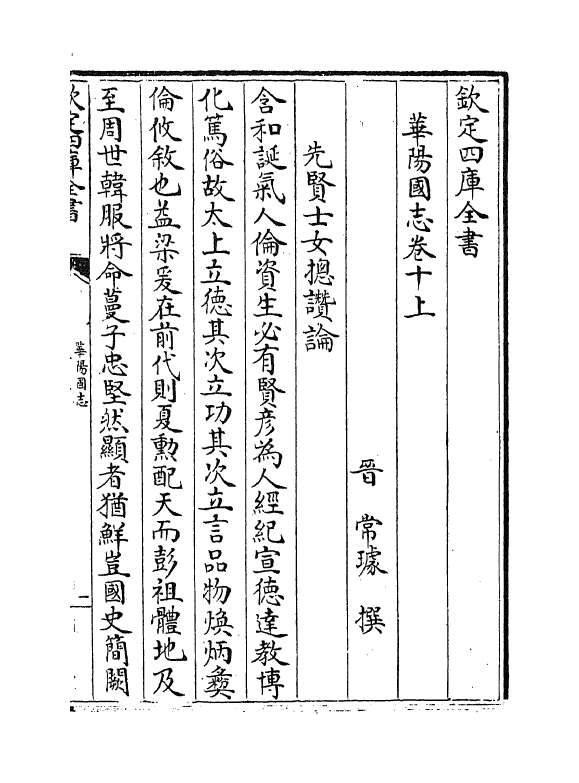 欽定四庫全書
華陽國志卷十上
晉 常璩 撰
先賢士女摠讚論
含和誕氣人倫資生必有賢彦為人經紀宣徳達教博
化篤俗故太上立徳其次立功其次立言品物煥炳彛
倫攸敘也益梁爰在前代則夏勲配天而彭祖體地及
至周世韓服將命蔓子忠堅然顯者猶鮮豈國史簡闕
欽定四庫全書
華陽國志
一